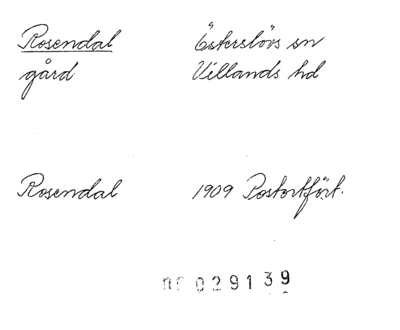 Rosendal Österslövs sn
gård Villands hd
Rosendal 1909 Postortfört.
029139